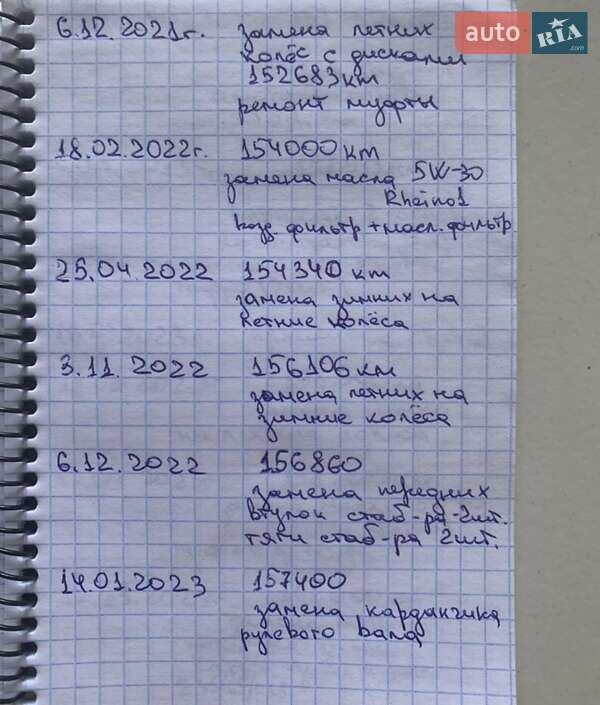 auto RIA .com
6.12.2021г. замена летних
колёс с дисками
152683км
ремонт муфты
18.02.2022г. 154000км
замена масла 5W-30
Rheinol
возд. фильтр + масл. фильтр
25.04.2022 154340 км
замена зимних на
летние колёса
3.11.2022 156106 км
замена летних на
зимние колёса
6.12.2022 156860
замена передних
втулок стаб-ра-2шт.
тяги стаб-ра 2шт.
14.01.2023 157400
замена карданчика
рулевого вала